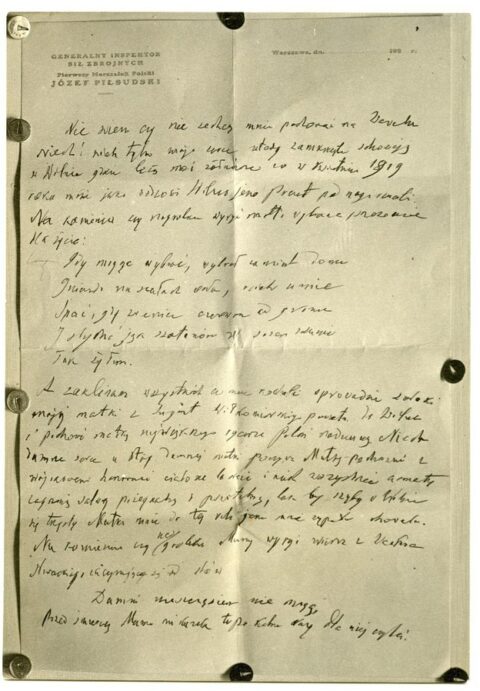 GENERALNY INSPEKTOR
SIŁ ZBROJNYCH
Pierwszy Marszałek Polski
JÓZEF PIŁSUDSKI
Warszawa, dn. 192 r.
Nie wiem czy nie zechcą mnie pochować na Wawelu
Niech! niech tylko moje serce wtedy zamknięte schowają
w Wilnie gdzie leżą moi żołnierze co w kwietniu 1919
roku mnie jako wodzowi Wilno jako prezent pod nogi rzucili.
Na kamieniu czy nagrobku wyryć motto wybrane przezemnie
dla życia:
Gdy mogąc wybrać, wybrał zamiast domu
Gniazdo na skałach orła, niech umie
Spać, gdy źrenice czerwone od gromu
I słychać jęk szatanów w sosen szumie
Tak żyłem.
A zaklinam wszystkich co mnie kochali sprowadzić zwłoki
mojej matki z Sugint Wiłkomirskiego powiatu do Wilna
i pochować matkę największego rycerza Polski nademną. Niech
dumne serce u stóp dumnej matki spoczywa. Matkę pochować z
wojskowemi honorami ciało na lawecie i niech wszystkie armaty
zagrzmią salwą pożegnalną i powitalną, tak by szyby w Wilnie
się trzęsły. Matka mnie do tej roli jaka mnie wypadła chowała.
Na kamieniu czy nagrobku Mamy wyryć wiersz z Wacława
Słowackiego zaczynający się od słów
Dumni nieszczęściem nie mogą
Przed śmiercią Mama mi kazała to po kilka razy dla niej czytać.